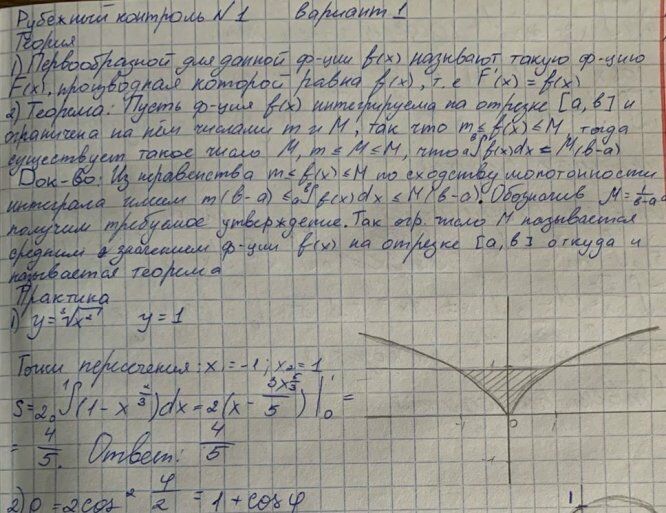 Рубежный контроль N 1 Вариант 1
Теория
1) Первообразной для данной ф-ции f(x) называют такую ф-цию
F(x), производная которой равна f(x), т.е F'(x) = f(x)
2) Теорема: Пусть ф-ция f(x) интегрируема на отрезке [a, b] и
ограничена на нём числами m и M, так что m ≤ f(x) ≤ M, тогда
существует такое число M, m ≤ M ≤ M, что a∫b f(x)dx = M(b-a)
Док-во: Из неравенства m ≤ f(x) ≤ M по сходству монотонности
интеграла имеем m(b-a) ≤ a∫b f(x)dx ≤ M(b-a). Обозначив M = 1/(b-a)
получим требуемое утверждение. Так огр. число M называется
средним значением ф-ции f(x) на отрезке [a, b] откуда и
называется теорема
Практика
1) y = ³√x² y = 1
Точки пересечения: x = -1; x₂ = 1
S = 2 0∫1 (1 - x^(2/3))dx = 2(x - 3x^(5/3)/5) |₀¹ =
= 4/5. Ответ: 4/5
-1 0 1
-1
2) ρ = 2cos² φ/2 = 1 + cosφ
1